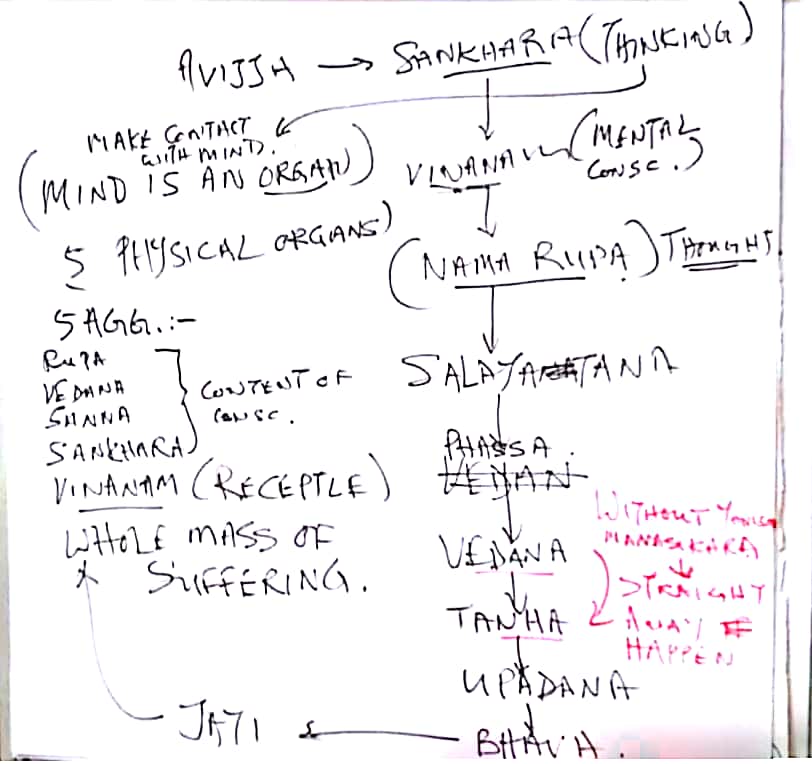 AVIJJA → SANKHARA (THINKING)
MAKE CONTACT
WITH MIND.
(MIND IS AN ORGAN)
VINANA (MENTAL
CONSC.)
5 PHYSICAL ORGANS)
(NAMA RUPA) THOUGHT
5 AGG.:-
RUPA
VEDANA
SANNA
SANKHARA
CONTENT OF
CONSC.
VINANAM (RECEPTLE)
WHOLE MASS OF
SUFFERING.
SALAYATANA
PHASSA.
VEDAN
VEDANA
TANHA
WITHOUT
MANASIKARA
STRAIGHT
AWAY
HAPPEN
UPADANA
BHAVA.
JATI